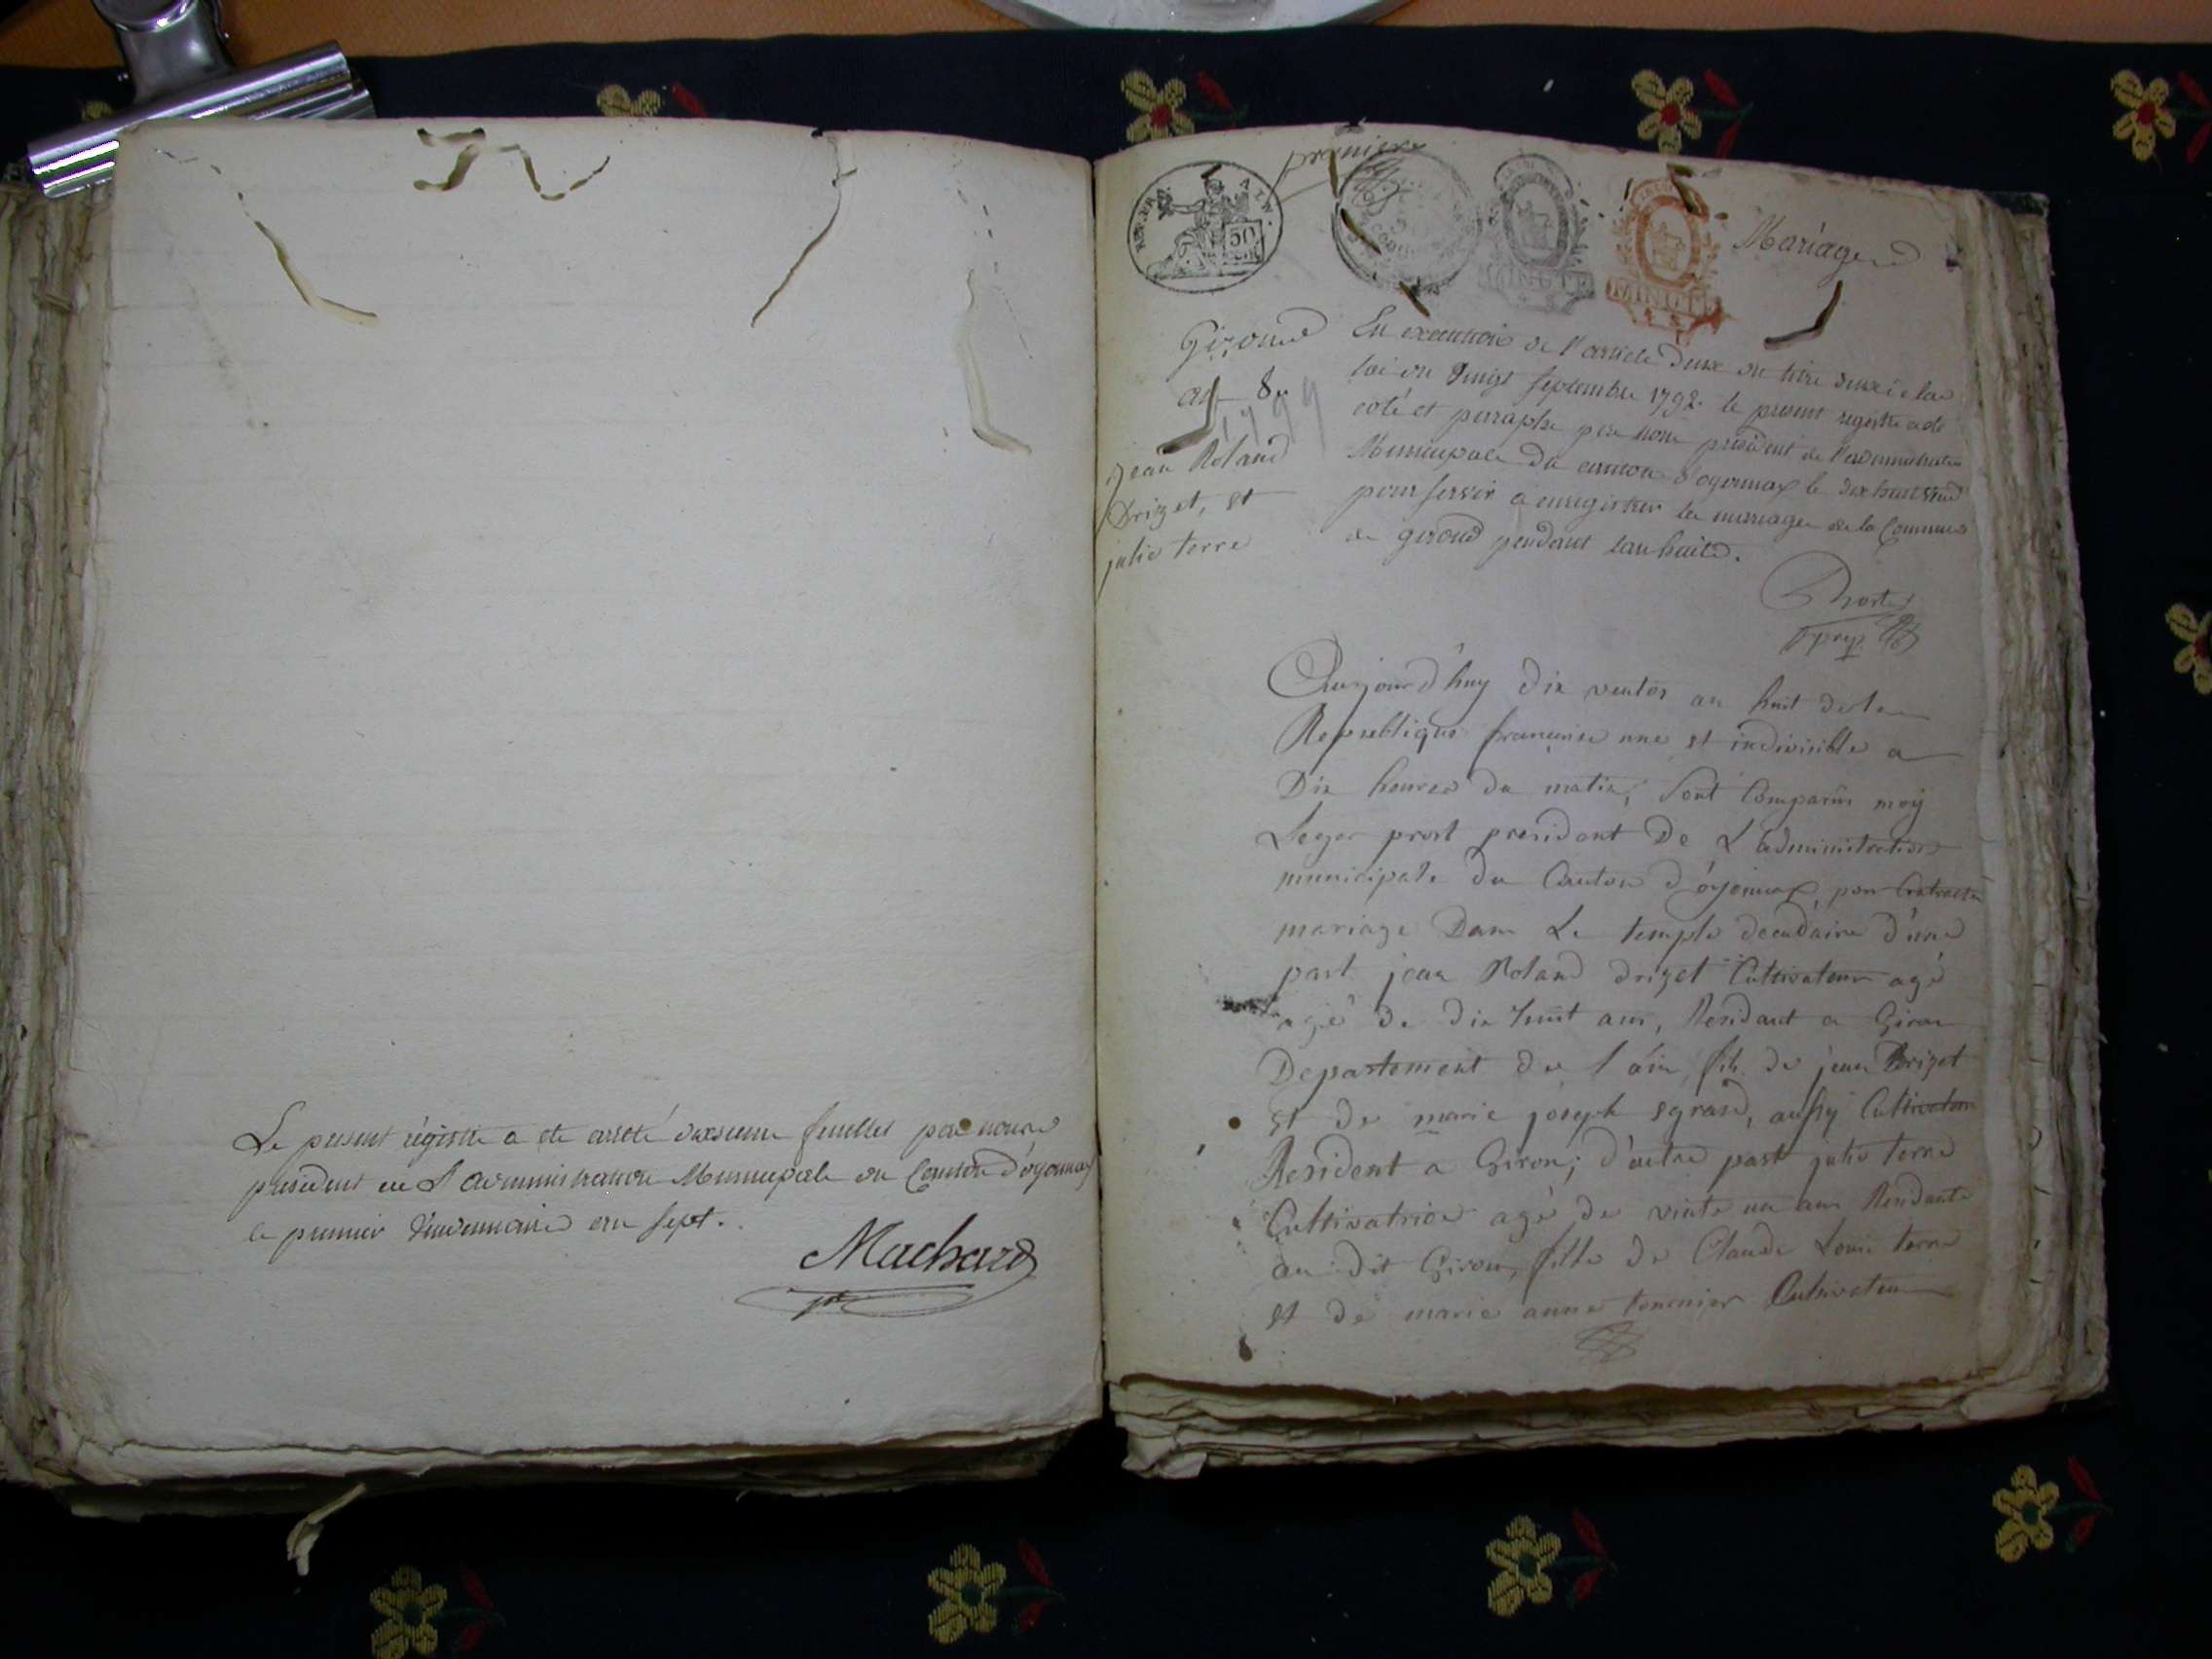 Le present régistre a ete arreté deuxieme feuillet par nous
president de L'administration Municipale du Canton d'oyonnax
le premier vendemiaire an sept.
Machard
premiere
REP. FRA.
50
CENT
MINUTE
MINUTE
Mariage
Girond
an 8e
1799
jean Roland
Drizet, et
julie terre
En execution de l'article deux du titre deux de la
loi du vingt septembre 1792 le present registre a été
coté et perraphé par nous president de l'administration
Municipale du canton d'oyonnax le dix huit
pour servir a enregistrer les mariages de la Commune
de girond pendant l'an huite.
Prost
Aujourd'huy dix ventos an huit de la
Republique francaise une et indivisible a
Dix heures du matin, sont Comparus moy
Leger prost president De L'administration
municipale du Canton d'oyonnax, pour Contracter
mariage Dans Le temple decadaire d'une
part jean Roland drizet Cultivateur agé
agé de dix huit ans, Residant a Giron
Departement de l'ain fils de jean Drizet
et de marie joseph egrand, aussy Cultivateur
Resident a Giron; d'autre part julie terre
Cultivatrice agé de vinte un ans Residante
au dit Giron, fille de Claude Louis terre
et de marie anne tournier Cultivateur